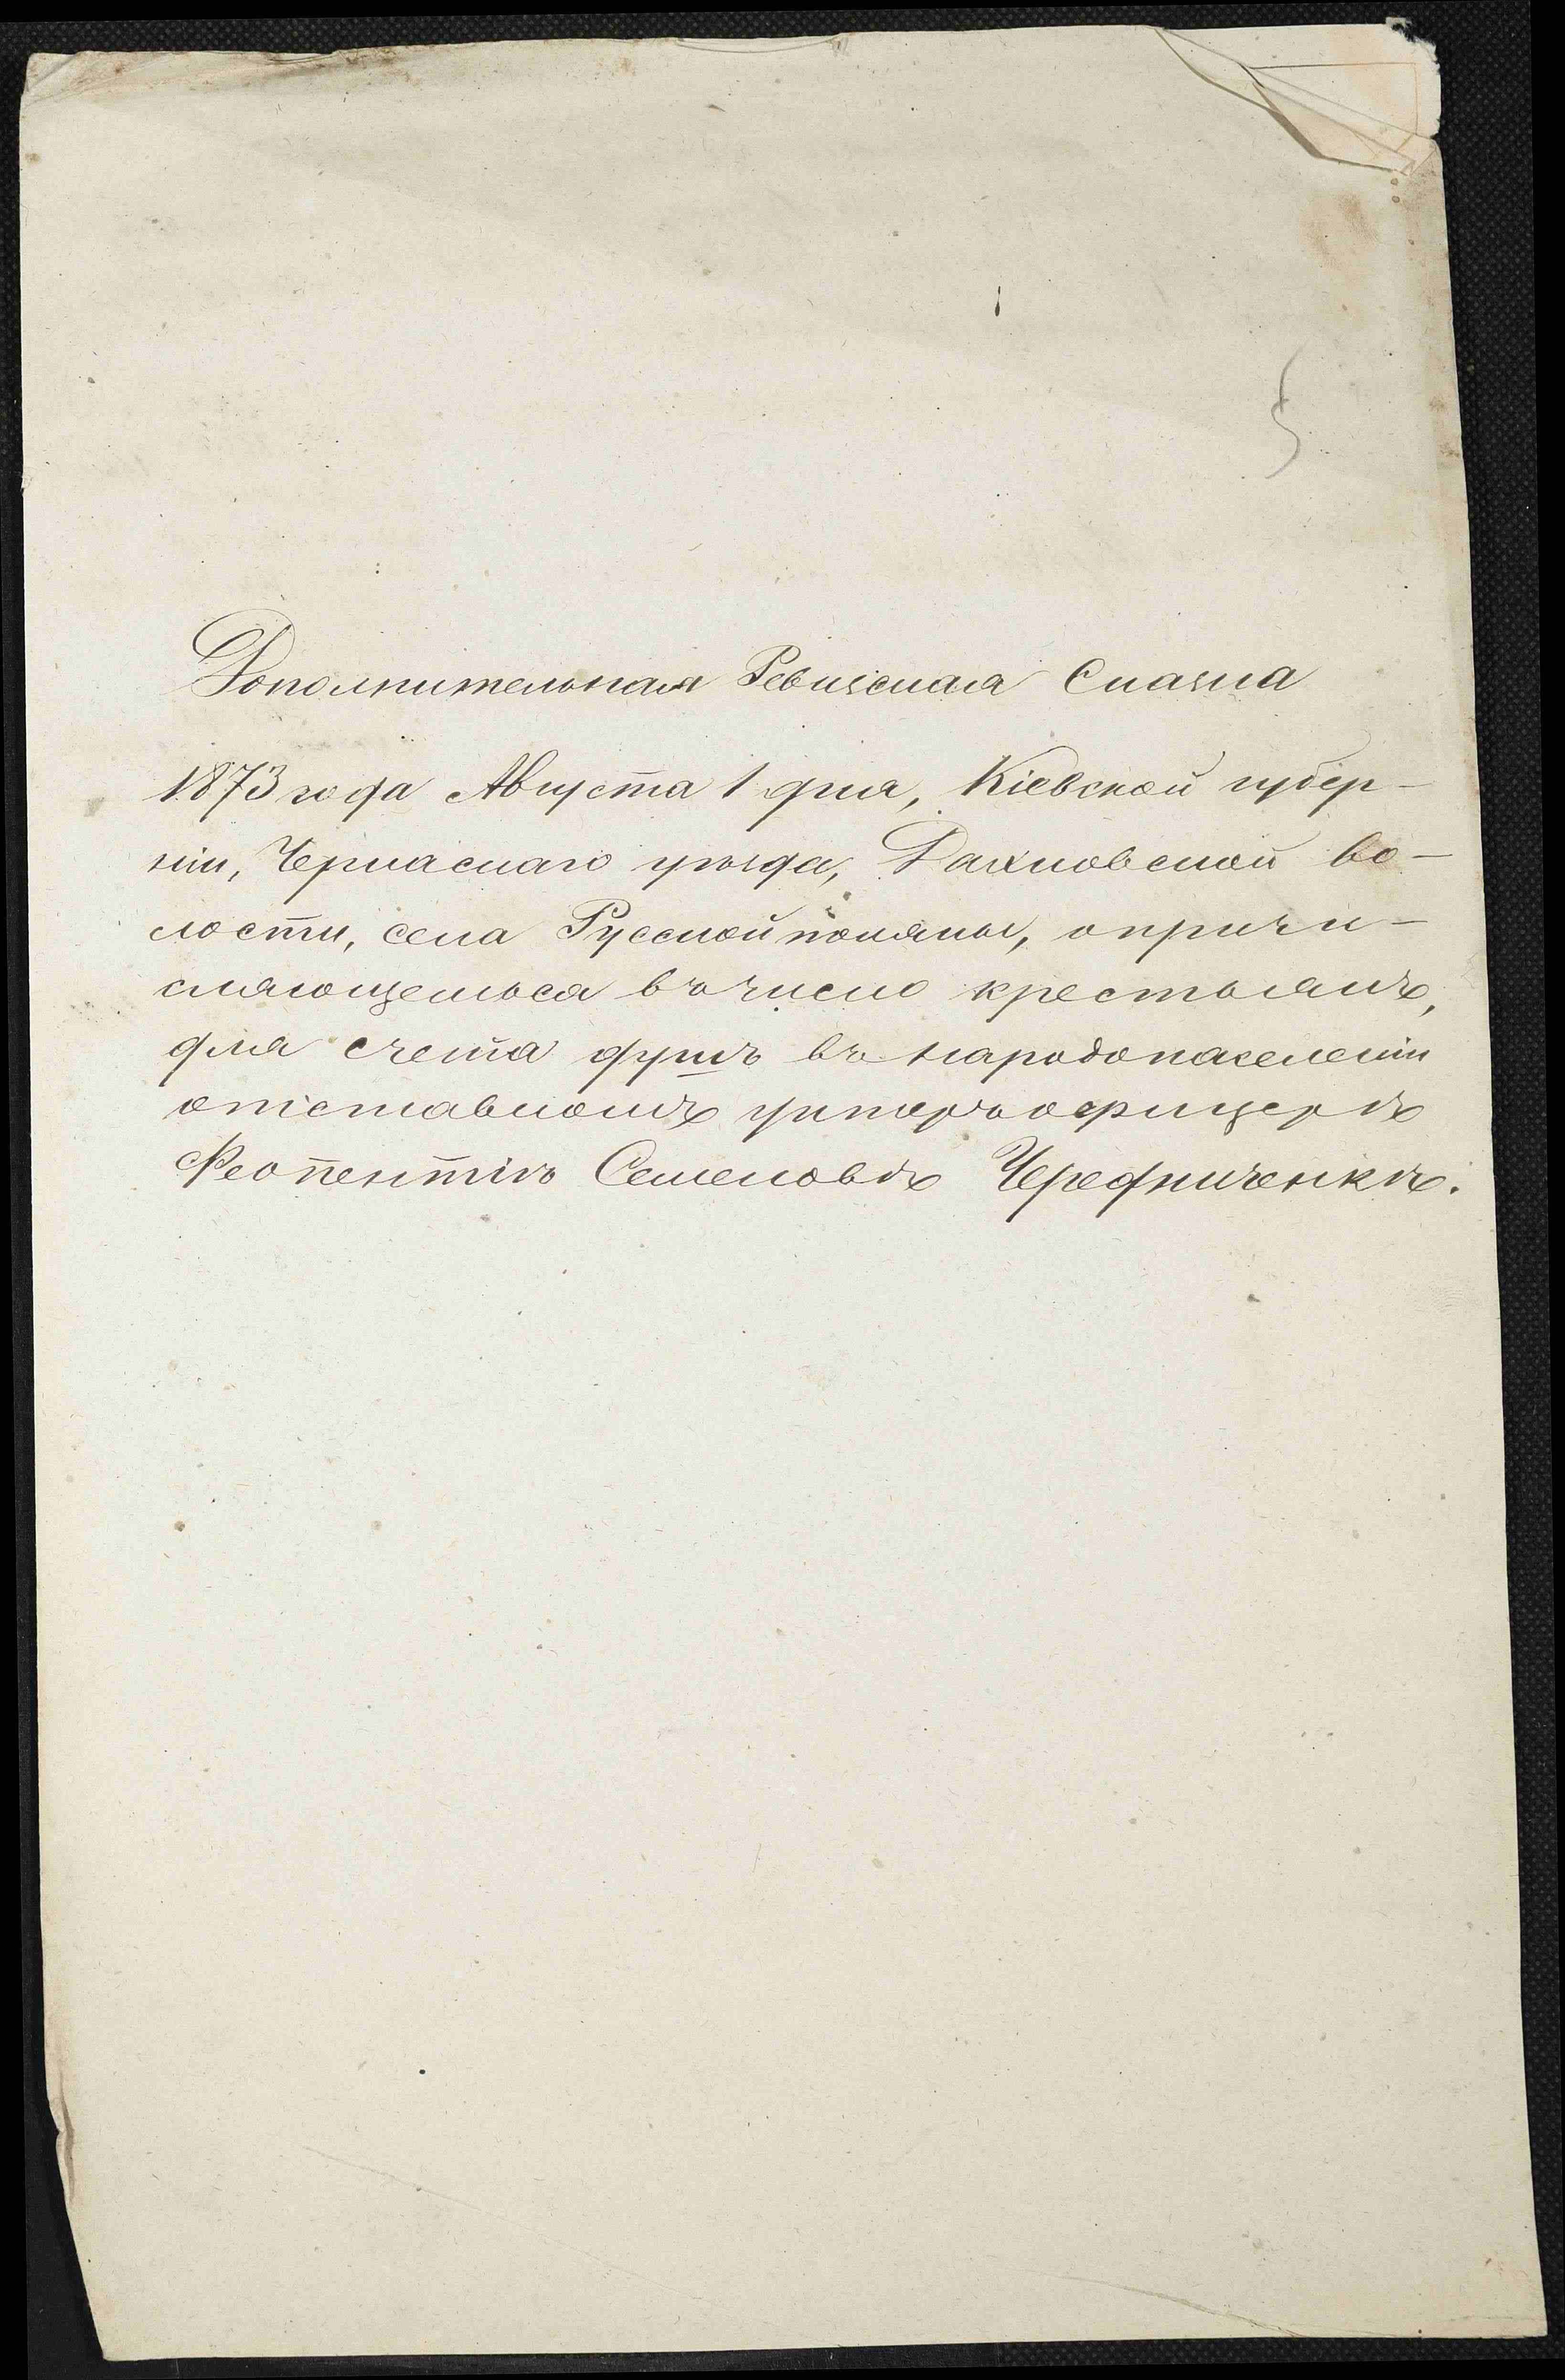 Дополнительная Ревизская Сказка
1873 года Августа 1 дня, Кіевской губер-
ніи, Черкаскаго уѣзда, Дахновской во-
лости, села Русской поляны, о причи-
сляющемъся въ число крестьянъ,
для счета душъ въ народонаселеніи
отставномъ унтеръ офицерѣ
Феопентіѣ Семеновѣ Чередниченкѣ.